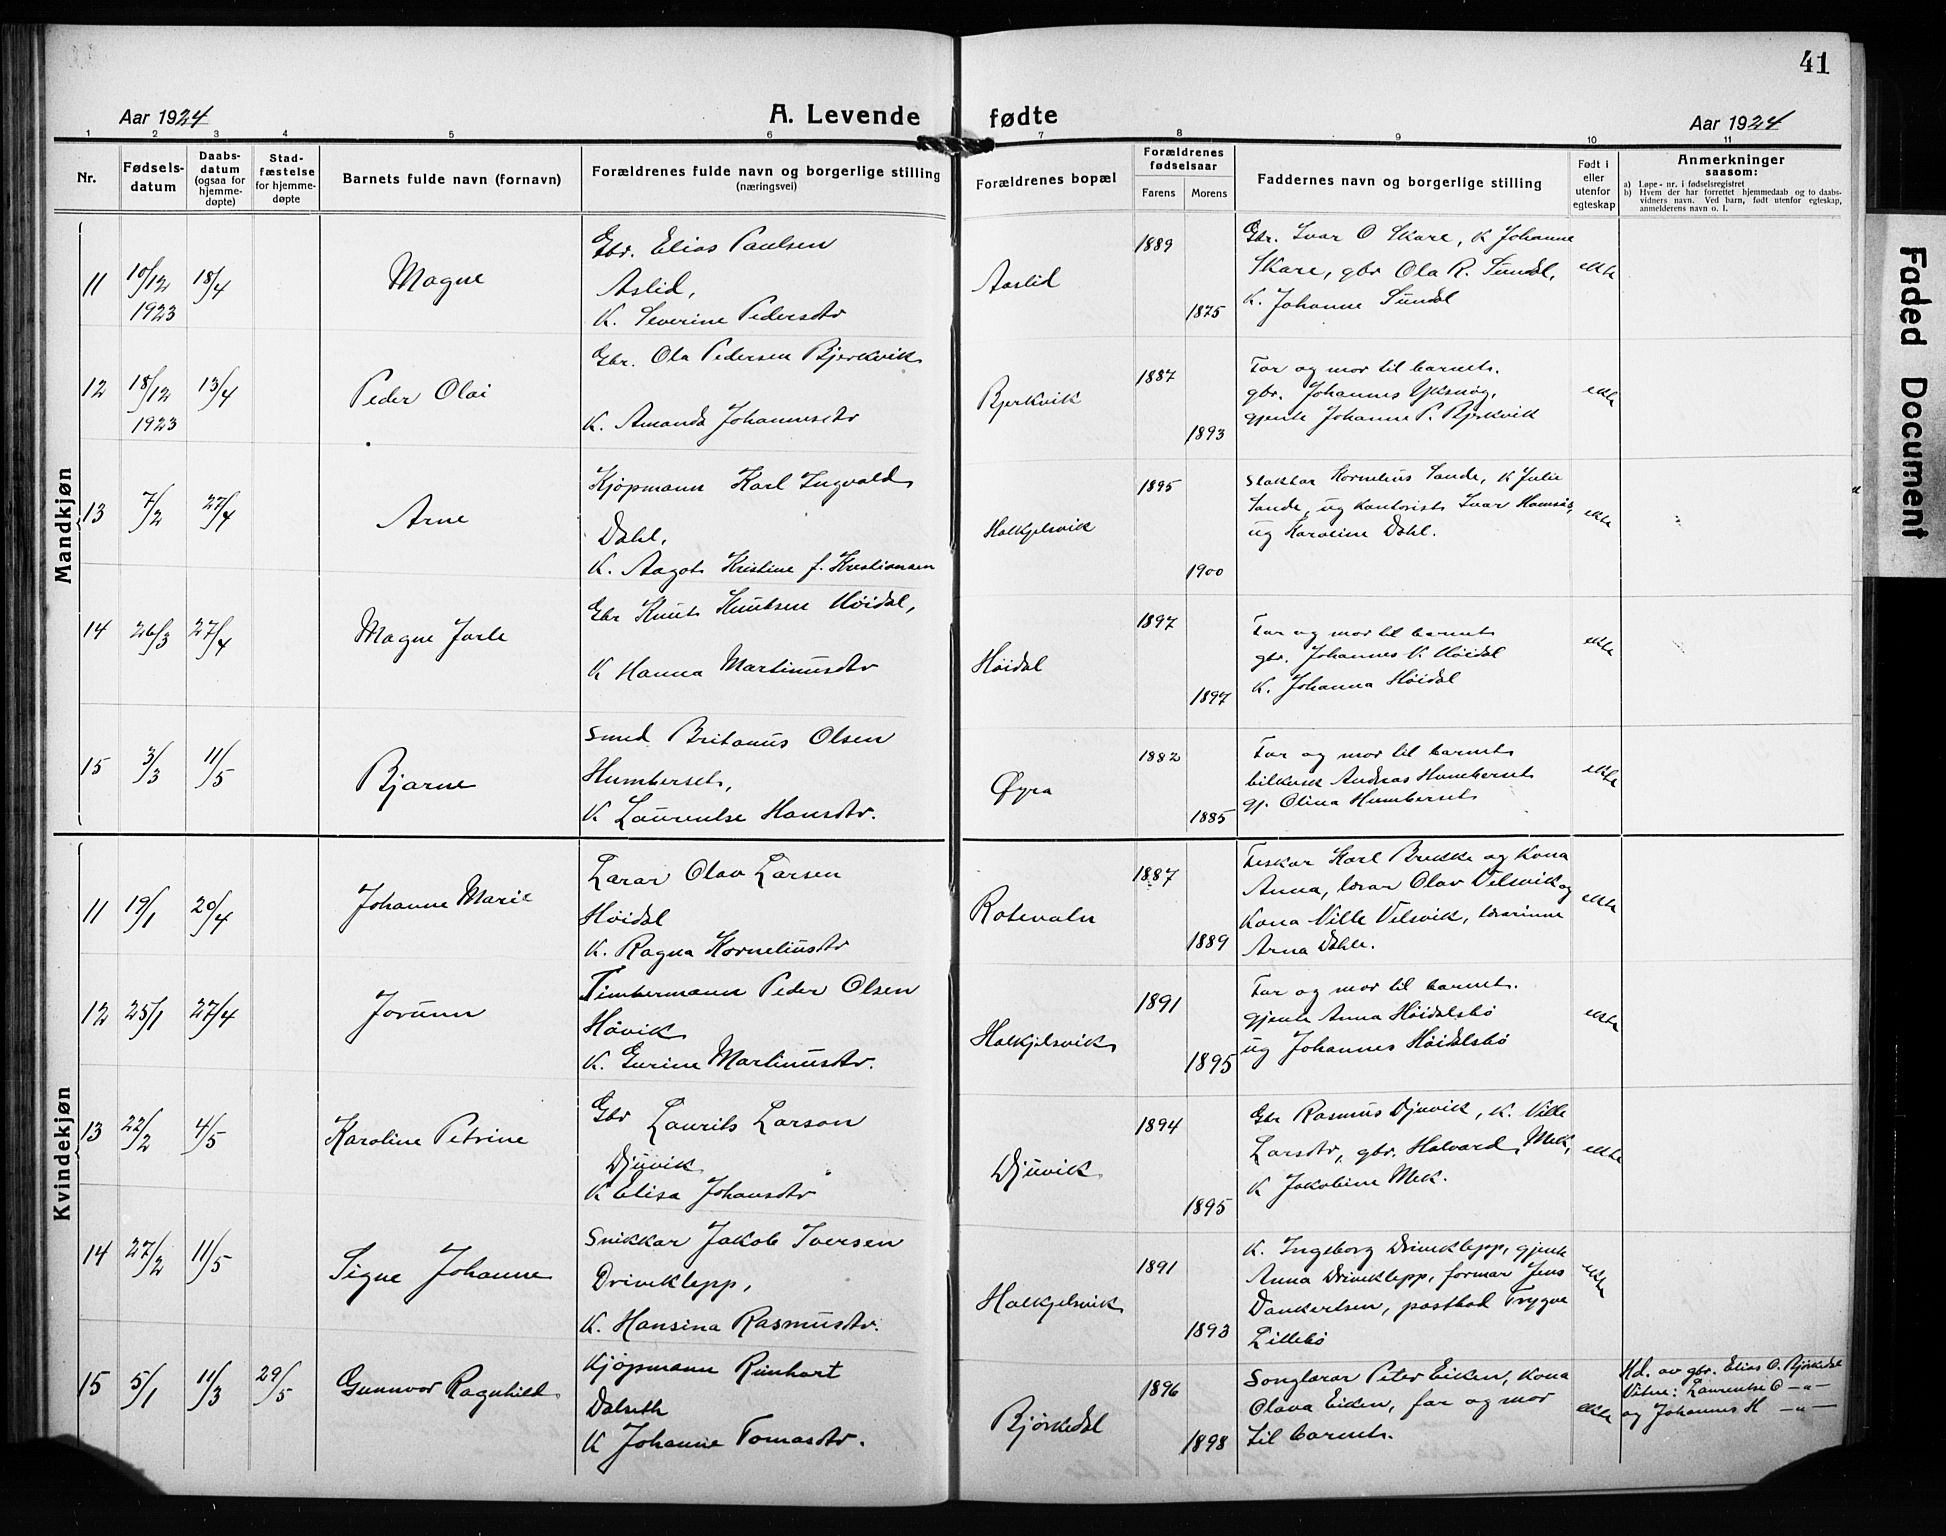 41
Aar 1924
A. Levende fødte
Aar 1924
1 2 3 4 5 6 7 8 9 10 11
Nr.
Fødselsdatum
Daabsdatum (ogsaa for hjemmedøpte)
Stadfæstelse for hjemmedøpte
Barnets fulde navn (fornavn)
Forældrenes fulde navn og borgerlige stilling
(næringsvei)
Forældrenes bopæl
Forældrenes fødselsaar
Farens
Morens
Faddernes navn og borgerlige stilling
Født i eller utenfor egteskap
Anmerkninger
saasom:
a) Løpe-nr. i fødselsregistret
b) Hvem der har forrettet hjemmedaab og to daabs-
vidners navn. Ved barn, født utenfor egteskap,
anmelderens navn o. l.
Faded Document
Mandkjøn
11 10/12 1923 18/4 Magne
Gbr. Elias Paulsen
Aslid,
K. Severine Pedersdtr
Aaslid
1889
1875
Gbr. Ivar O Skare, K Johanne
Skare, gbr Ola R. Sundal,
K. Johanne Sundal
ekte
12 18/12 1923 13/4 Peder Olai
Gbr. Ola Pedersen Bjerkvik
K. Amanda Johannesdtr
Bjerkvik
1887
1893
Far og mor til barnet.
gbr. Johannes Yksnøy,
gjente Johanne P. Bjerkvik
ekte
13 7/2 27/4 Arne
Kjøpmann Karl Ingvald
Dahl,
K. Aagot Kristine f. Kristiansen
Halkjelsvik
1895
1900
Slaktar Kornelius Sande, K Julie
Sande, ug kontorist Ivar Hamsås,
ug Karoline Dahl.
ekte
14 26/3 27/4 Magne Jarle
Gbr Knut Knutsen Høidal,
K Hanna Martinusdtr
Høidal
1897
1897
Far og mor til barnet
gbr. Johannes K. Høidal
K. Johanna Høidal
ekte
15 3/3 11/5 Bjarne
Smed Britanus Olsen
Humberset,
K Laurentse Hansdtr.
Øyra
1882
1885
Far og mor til barnet
bilkusk Andreas Humberset
gj. Olina Humberset
ekte
Kvindekjøn
11 19/1 20/4 Johanne Marie
Lærar Olav Larsen
Høidal
K. Ragna Korneliusdtr
Rotevatn
1887
1889
Fiskar Karl Brekke og Kona
Anna, lærar Olav Velsvik og
Kona Ville Velsvik, lærarinne
Arna Dahle.
ekte
12 25/1 27/4 Jorunn
Timbermann Peder Olsen
Håvik
K. Gurine Martinusdtr.
Halkjelsvik
1891
1895
Far og mor til barnet.
gjente Anna Høidalsbø
ug Johannes Høidalsbø
ekte
13 22/2 4/5 Karoline Petrine
Gbr Laurits Larson
Djuvik
K Elisa Johansdtr
Djuvik
1894
1895
Gbr Rasmus Djuvik, K. Ville
Larsdtr, gbr. Halvard Mek,
K Jakobine Mek.
ekte
14 27/2 11/5 Signe Johanne
Snikkar Jakob Iversen
Driveklepp,
K. Hansina Rasmusdtr.
Halkjelsvik
1891
1893
K. Ingeborg Driveklepp, gjente
Anna Driveklepp, formar Jens
Dankertsen, postbod Trygve
Lillebø
ekte
15 5/1 11/3 29/5 Gunnvor Ragnhild
Kjøpmann Reinhart
Dalseth
K Johanne Tomasdtr.
Bjørkedal
1896
1898
Songlærar Peter Eiken, Kona
Olava Eiken, far og mor
til barnet.
ekte
Hd. av gbr. Elias O. Bjørkedal
Vitne: Laurentse O —"—
og Johannes H —"—